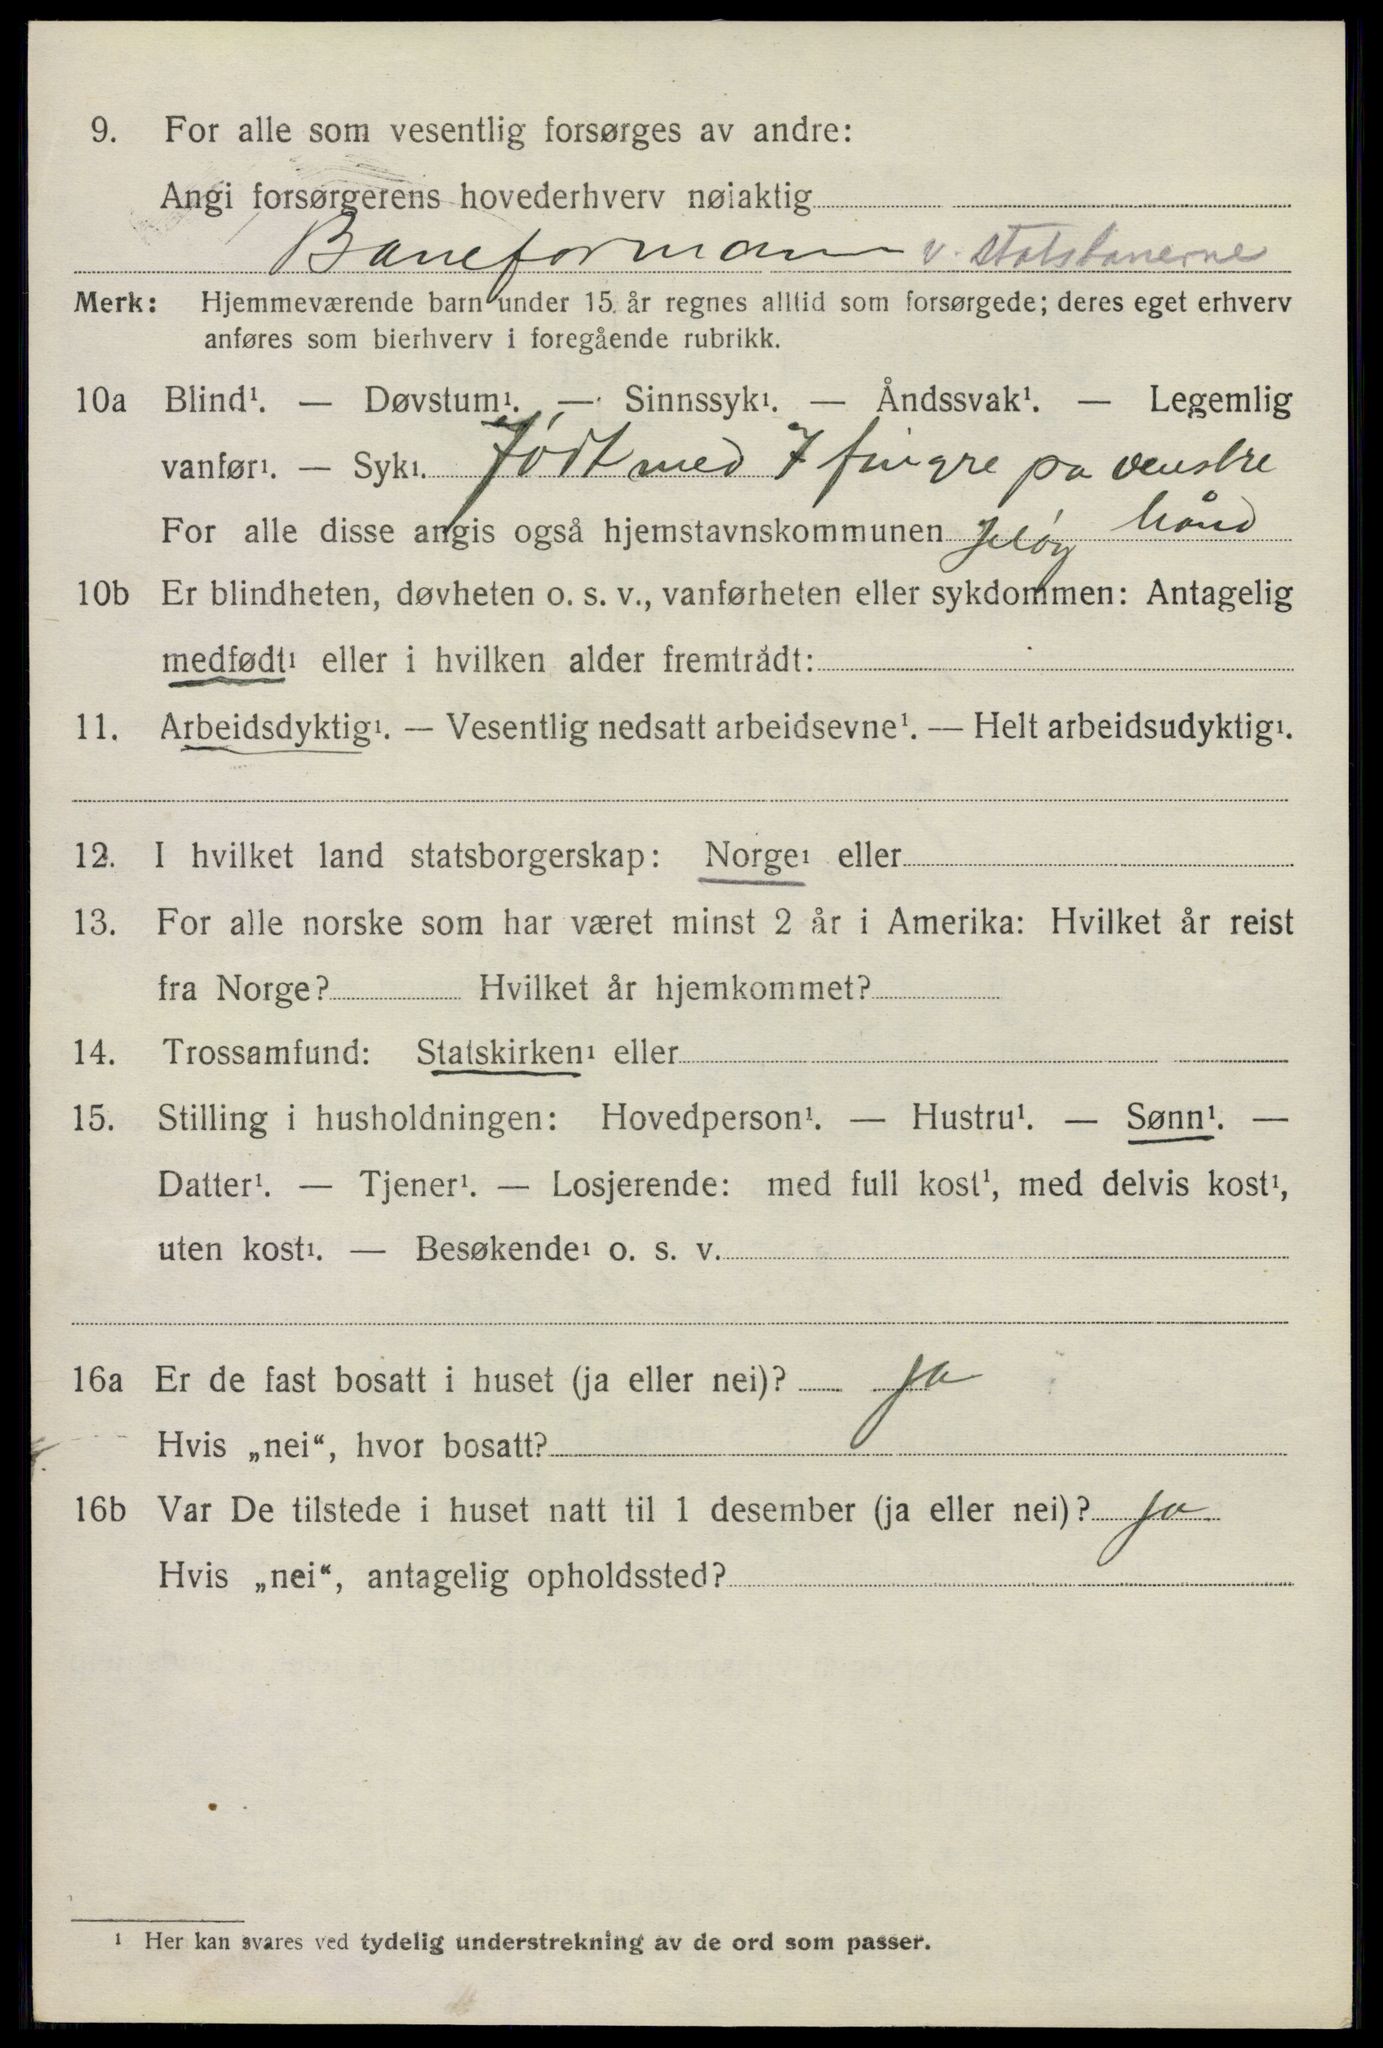 9. For alle som vesentlig forsørges av andre:
Angi forsørgerens hovederhverv nøiaktig
Baneformann v. Statsbanerne
Merk: Hjemmeværende barn under 15 år regnes alltid som forsørgede; deres eget erhverv
anføres som bierhverv i foregående rubrikk.
10a Blind¹. — Døvstum¹. — Sinnssyk¹. — Åndssvak¹. — Legemlig
vanfør¹. — Syk¹. Født med 7 fingre på venstre
For alle disse angis også hjemstavnskommunen hånd
10b Er blindheten, døvheten o. s. v., vanførheten eller sykdommen: Antagelig
medfødt¹ eller i hvilken alder fremtrådt:
11. Arbeidsdyktig¹. — Vesentlig nedsatt arbeidsevne¹. — Helt arbeidsudyktig¹.
12. I hvilket land statsborgerskap: Norge¹ eller
13. For alle norske som har været minst 2 år i Amerika: Hvilket år reist
fra Norge? Hvilket år hjemkommet?
14. Trossamfund: Statskirken¹ eller
15. Stilling i husholdningen: Hovedperson¹. — Hustru¹. — Sønn¹. —
Datter¹. — Tjener¹. — Losjerende: med full kost¹, med delvis kost¹,
uten kost¹. — Besøkende¹ o. s. v.
16a Er de fast bosatt i huset (ja eller nei)? ja
Hvis „nei“, hvor bosatt?
16b Var De tilstede i huset natt til 1 desember (ja eller nei)? ja
Hvis „nei“, antagelig opholdssted?
¹ Her kan svares ved tydelig understrekning av de ord som passer.